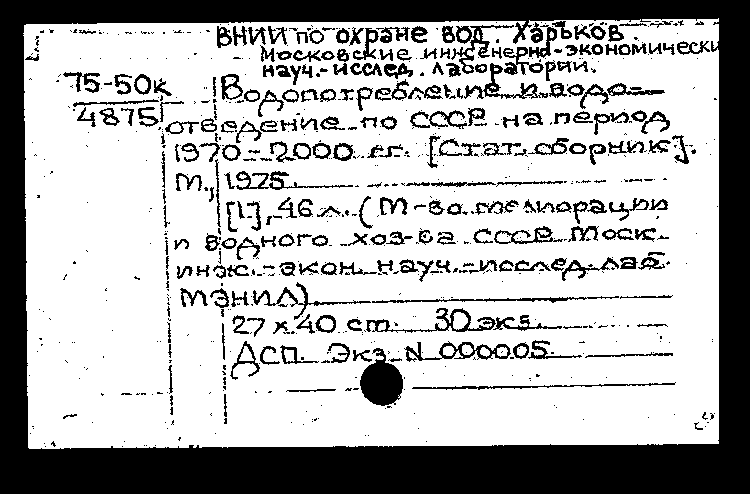 ВНИИ по охране вод. Харьков.
Московские инженерно-экономически
науч.-исслед. лаборатории.
75-50к
4875
Водопотребление и водо-
отведение по СССР на период
1970-2000 гг. [Стат. сборник].
М., 1975.
[1], 46 л. (М-во мелиорации
и водного хоз-ва СССР Моск.
инж.-экон. науч.-исслед. лаб.
МЭНИЛ).
27 х 40 см. 30 экз.
ДСП. Экз. N 000005.